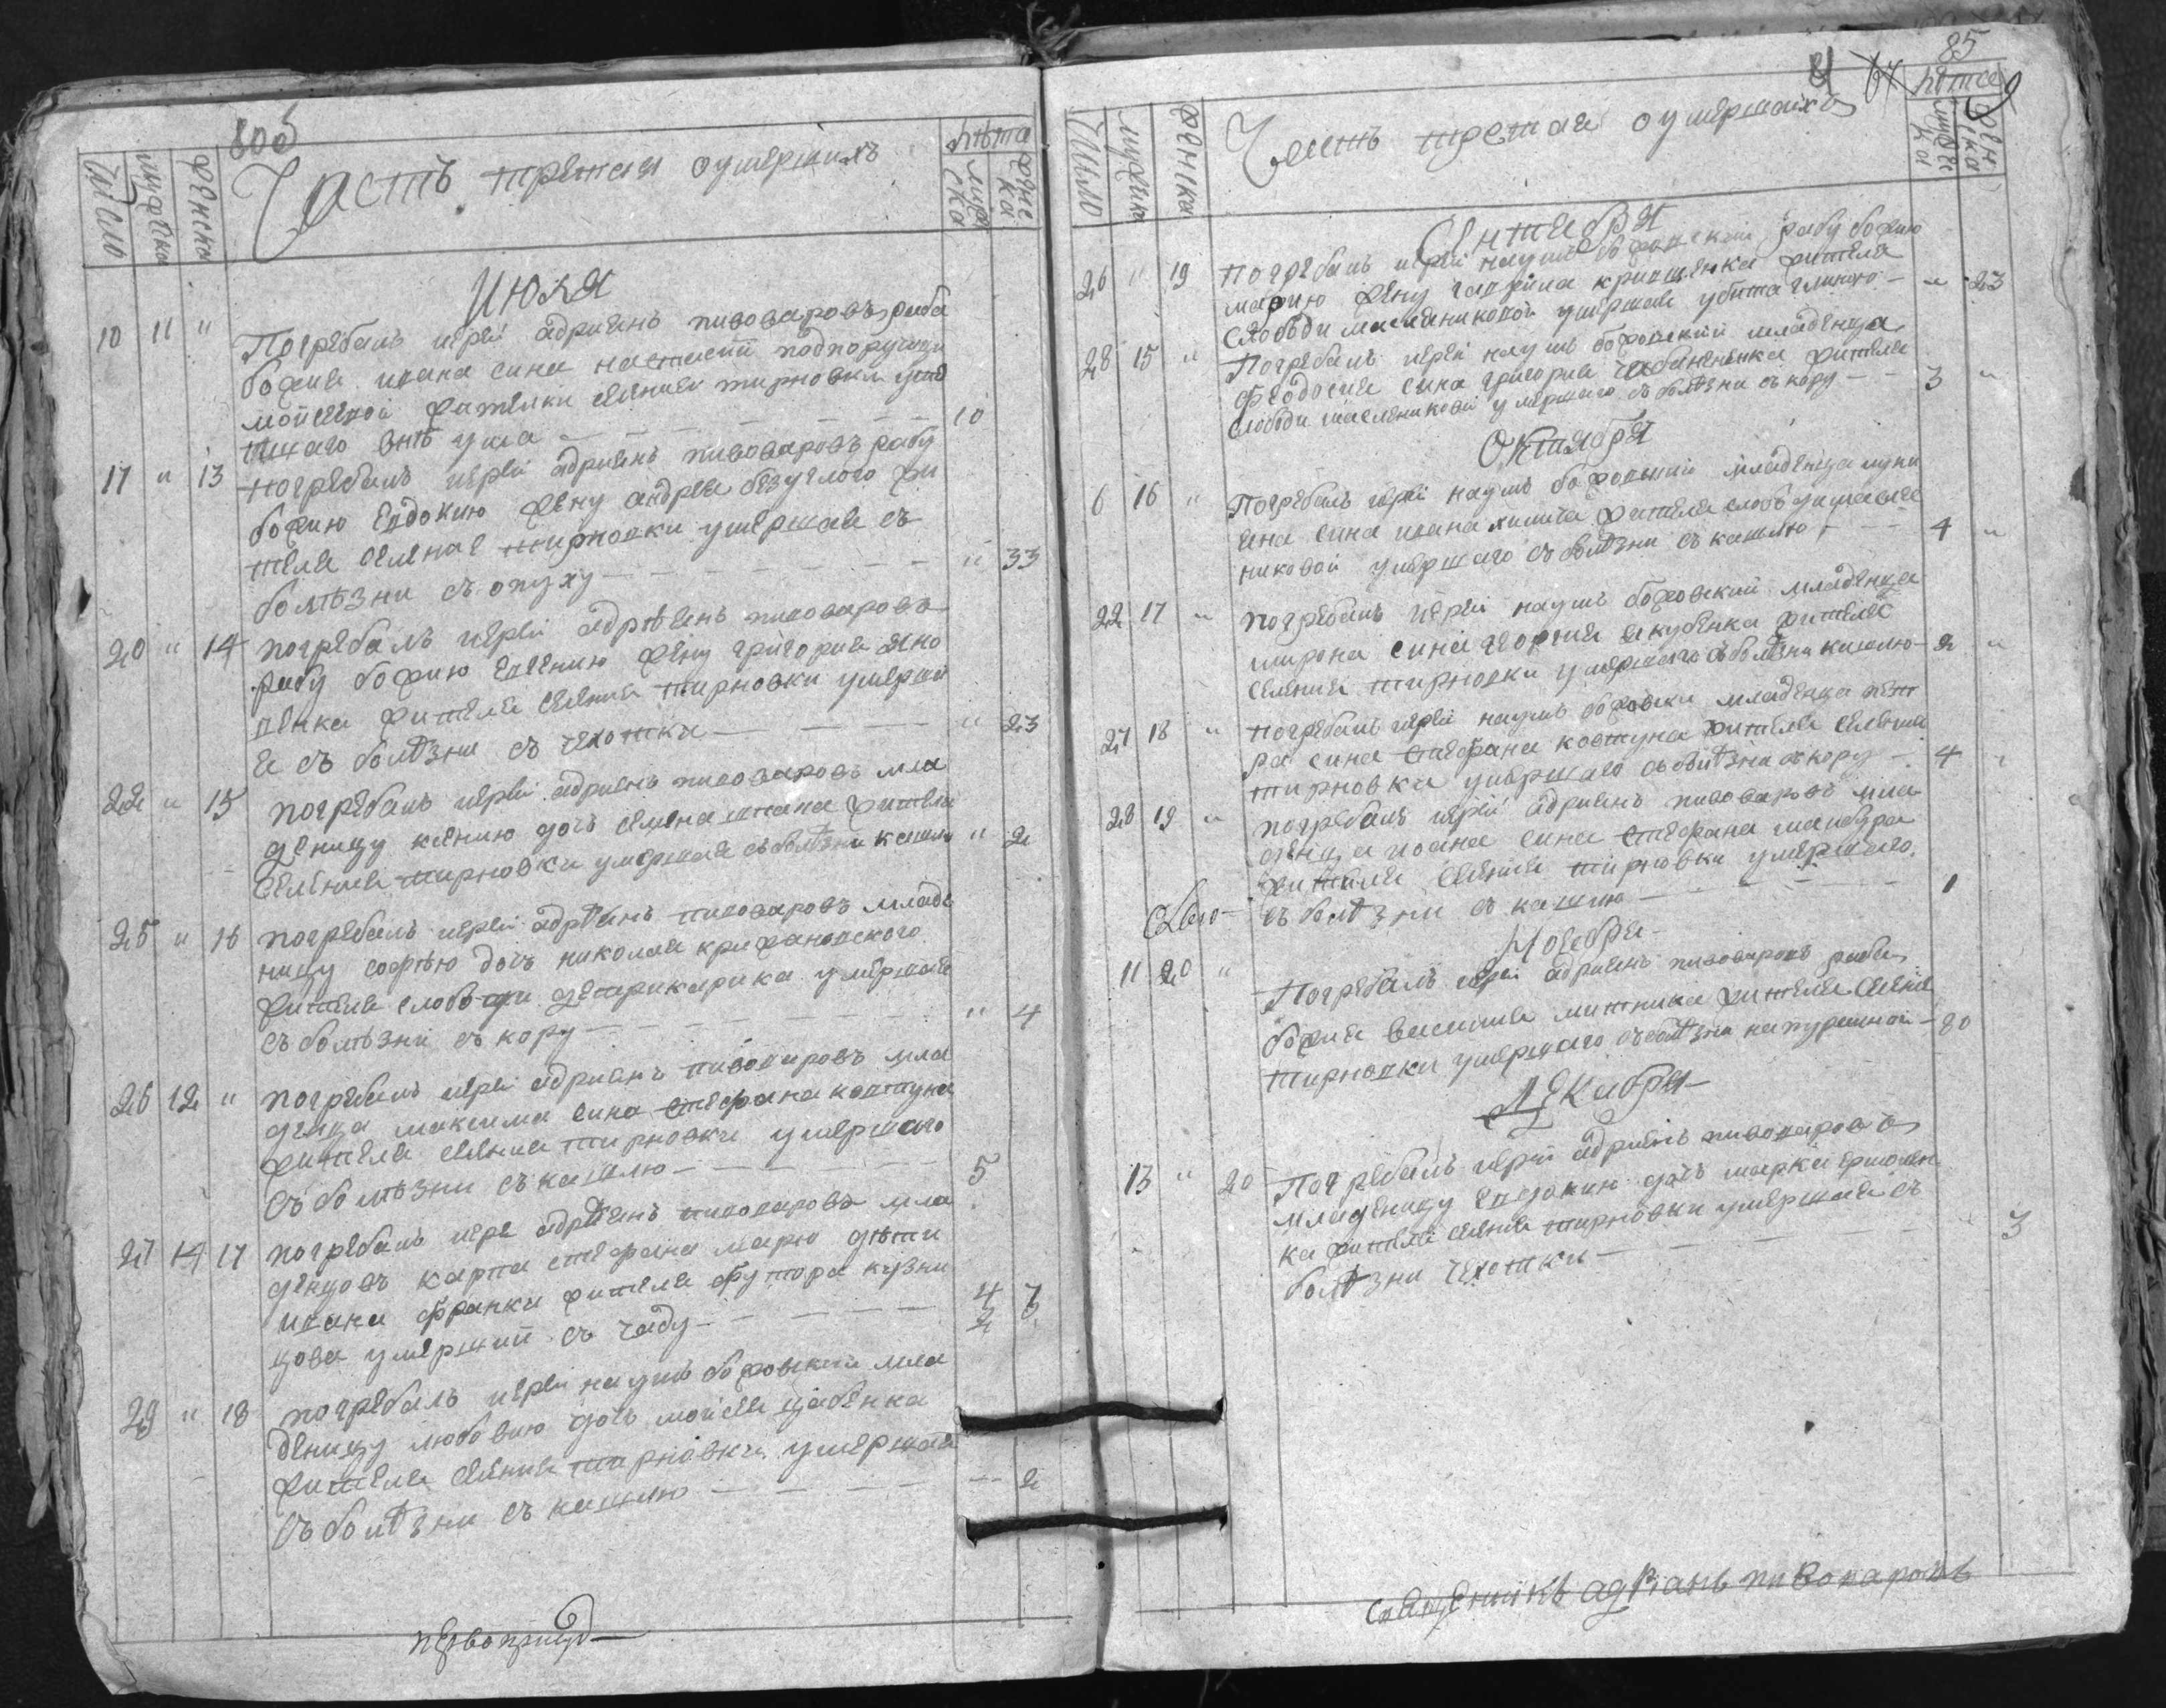 80об
Число
мужеска
женска
Часть третая оумершихъ
лѣта
муж
ска
женс
ка
Июля
10 11 " Погребалъ иерей адриянъ пивоваровъ раба
божия ивана сина подпоручици
жителки селения тирновки
10
17 " 13 погребалъ иерей адриянъ пивоваровъ рабу
божию Евдокию жену андрея безуглого жи
теля селения тирновки умершая съ
болѣзни съ опуху " 33
20 " 14 погребалъ иерей адрѣянъ пивоваровъ
рабу божию Евгению жену григория
жителя селения тирновки умерша
я съ болѣзни съ чехотки " 23
22 " 15 погребалъ иерей адриянъ пивоваровъ мла
деницу ксению дочъ семена жителя
селения тирновки умершая съ болѣзни кашлю " 2
25 " 16 погребалъ иерей адрѣянъ пивоваровъ младе
ницу софѣю дочъ николая крижановского
жителя слободи умершая
съ болѣзни съ кору " 4
26 12 " погребалъ иерей адриянъ пивоваровъ мла
денца максима сина стефана ковтуна
жителя селения тирновки умершаго
съ болѣзни съ кашлю 5
27 14 17 погребалъ иере адрѣянъ пивоваровъ мла
денцовъ карпа стефана марю дѣти
ивана франки жителя футора кузни
цова умерший съ чаду 4 7
2
29 " 18 погребалъ иерей наумъ божовский мла
деницу любовию дочъ мойсея цабенка
жителя селения тирновки умершая
съ болѣзни съ кашлю 2
85
Число
мужеска
женска
Часть третая оумершихъ
лѣта
женска
Сентября
26 " 19 Погребалъ иерей наумъ божовский рабу божию
марию жену гаврила крившенка жителя
слободи масляниковой умершая убита глиною " 23
28 15 " Погребалъ иерей наумъ божовский младенца
феодосия сина григория чабаненка жителя
слободи масляниковой умершаго съ болѣзни съ кору 3 "
Октября
6 16 " Погребалъ иерей наумъ божовский младенца луки
яна сина ивана жителя слободи масля
никовой умершаго съ болѣзни съ кашлю 4 "
22 17 " погребалъ иерей наумъ божовский младенца
мирона сина георгия якубенка жителя
селения тирновки умершаго съ болѣзни кашлю 2 "
27 18 " погребалъ иерей наумъ божовски младенца пет
ра сина стефана ковтуна жителя селения
тирновки умершаго съ болѣзни съ кору 4 "
28 19 " погребалъ иерей адриянъ пивоваровъ мла
денца иоана сина стефана
жителя селения тирновки умершаго
съ болѣзни съ кашлю 1
Ноября
11 20 " Погребалъ иерей адриянъ пивоваровъ раба
божия василия митника жителя селения
тирновки умершаго съ болѣзни натуралной 80
Декабря
13 " 20 Погребалъ иерей адриянъ пивоваровъ
младеницу евдокию дочъ марка ермолен
ка жителя селения тирновки умершая съ
болѣзни чехотки 3
священникъ адріанъ пивоваровъ